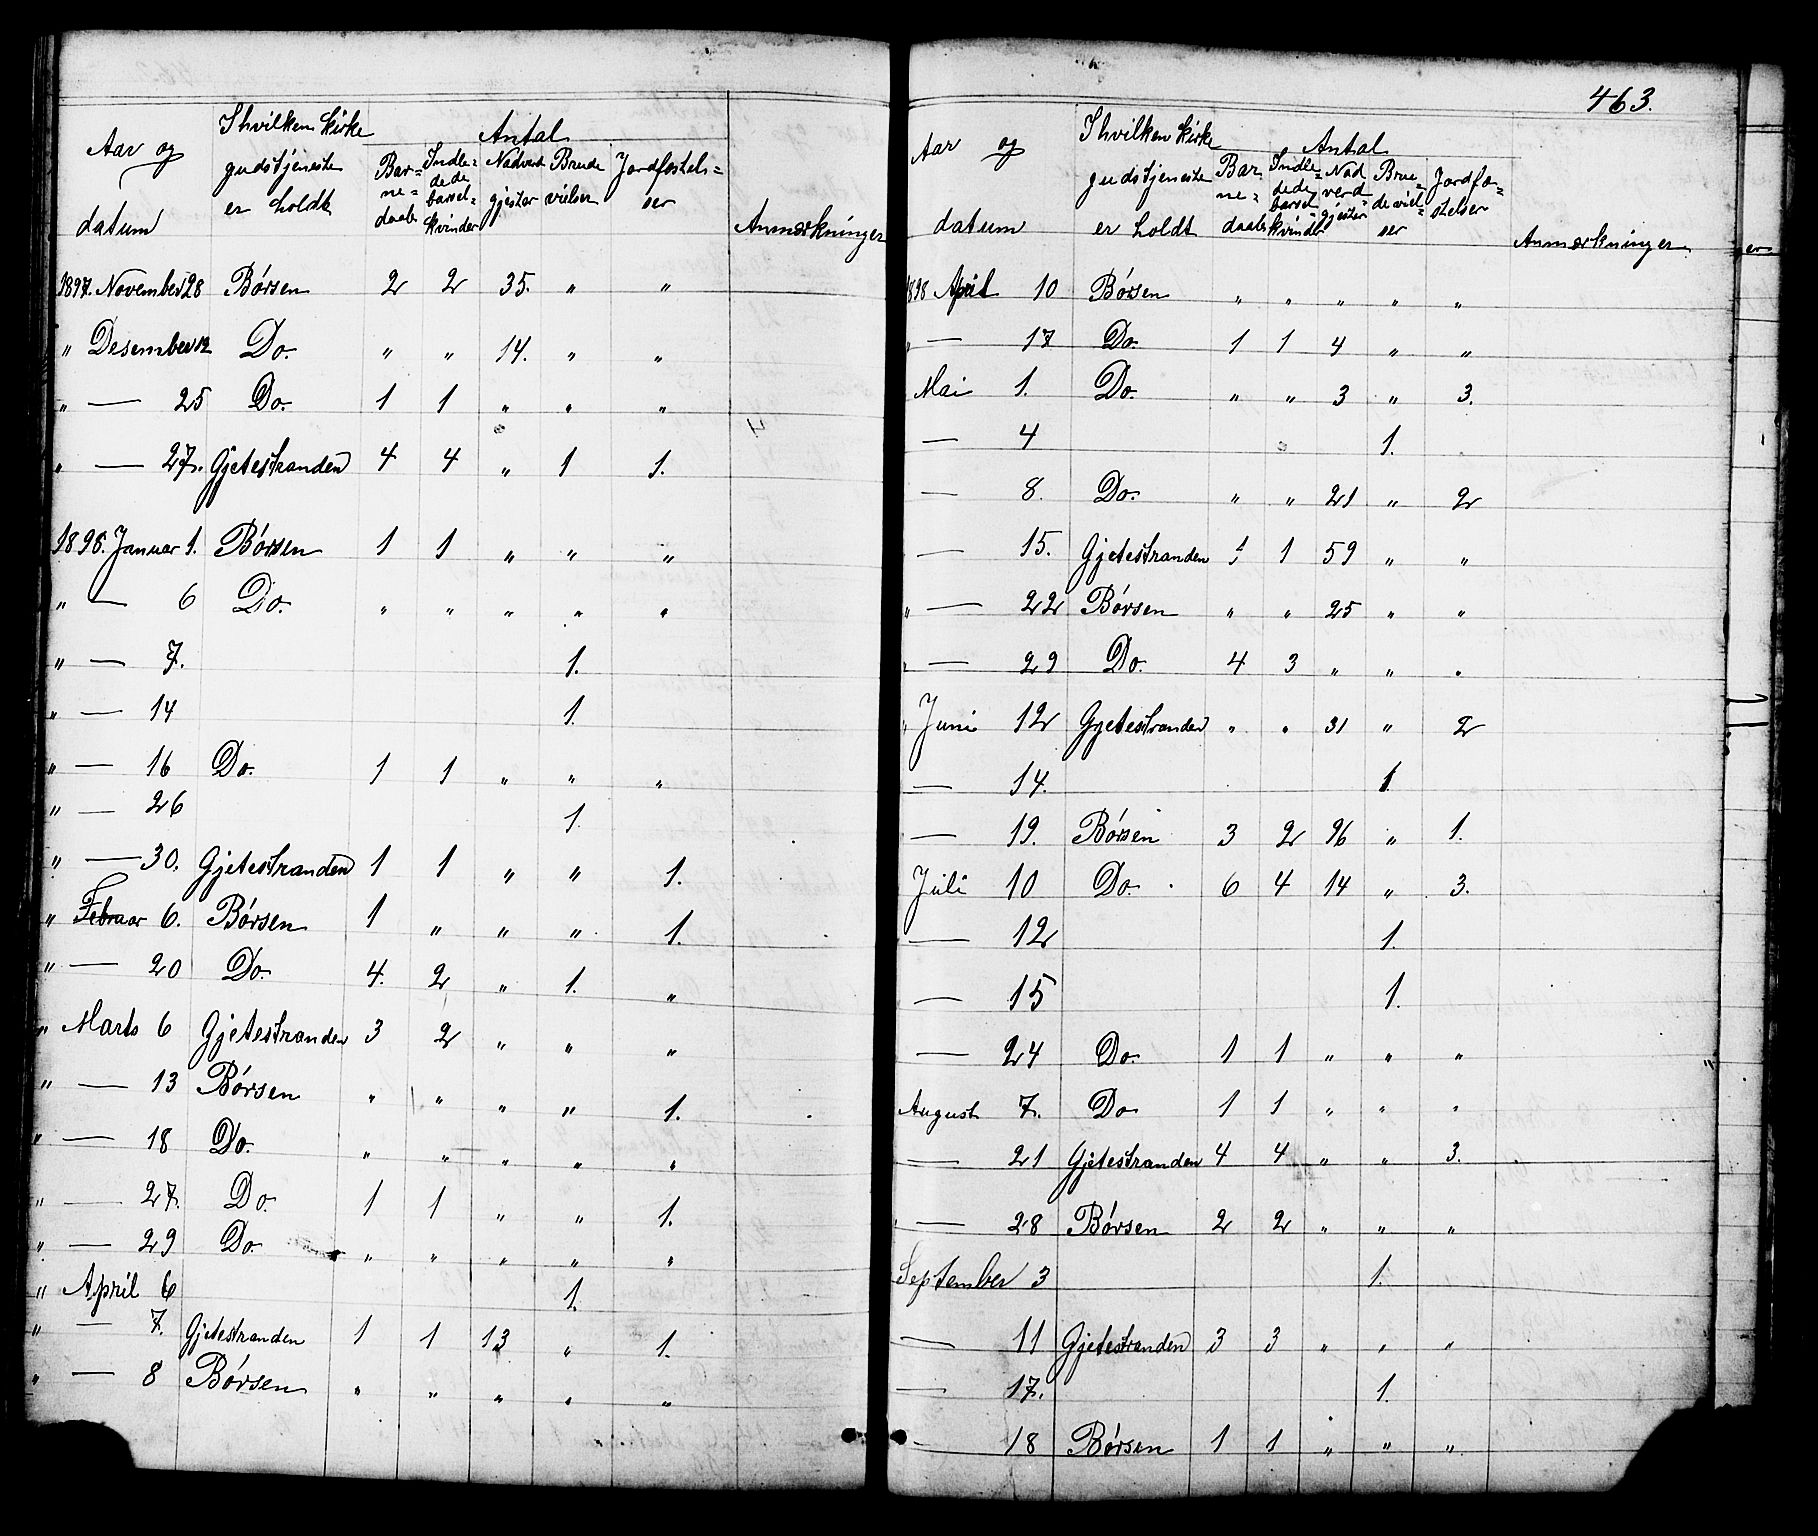 Aar og datum | I hvilken kirke gudstjeneste er holdt | Antal | Anmærkninger
Bar=ne=daab | Indle=dede barsel=kvinder | Nadverd gjester | Brude vielser | Jordfæstelser
1897. November 28 Børsen 2 2 35. " "
" Desember 12 Do. " " 14. " "
" — 25 Do. 1 1 " " "
" — 27. Gjetestranden 4 4 " 1 1.
1898. Januar 1. Børsen 1 1 " " "
" — 6 Do. " " " " "
" — 7. 1.
" — 14 1.
" — 16 Do. 1 1 " " "
" — 26 1.
" — 30. Gjetestranden 1 1 " " 1.
" Februar 6. Børsen 1 " " " 1.
" — 20 Do. 4. 2 " 1. "
" Marts 6 Gjetestranden 3 2 " " "
" — 13 Børsen " " " " 1.
" — 18 Do. " " " " "
" — 27. Do. 1 1 " " 1.
" — 29 Do. " " " " "
" April 6 1.
" — 7. Gjetestranden 1 1 13 " 1.
" — 8 Børsen " " " " "
463.
Aar og datum | I hvilken kirke gudstjeneste er holdt | Antal | Anmærkninger.
Bar ne= daab | Indle=dede barsel=kvinder | Nad verd gjester | Brue=de viel=ser | Jordfæ=stelser
1898 April 10 Børsen " " " " "
" — 17 Do. 1 1 4 " "
Mai 1. Do. " " 3 " 3.
— 4 1.
— 8. Do. " " 21 " 2
— 15. Gjetestranden 1 1 59 " "
" — 22 Børsen " " 25 " "
" — 29 Do. 4 3 " " "
" Juni 12 Gjetestranden " " 31 " 2
— 14. 1
— 19. Børsen 3 2 26 " 1.
Juli 10 Do. 6 4 14 " 3.
— 12 1.
— 15 1.
— 24 Do. 1 1 " " "
August 7. Do 1 1 " " "
— 21 Gjetestranden 4 4 " " 3.
— 28 Børsen 2 2 " " "
September 3 1.
— 11 Gjetestranden 3 3 " " "
— 17. 1.
— 18 Børsen 1 1 " " "